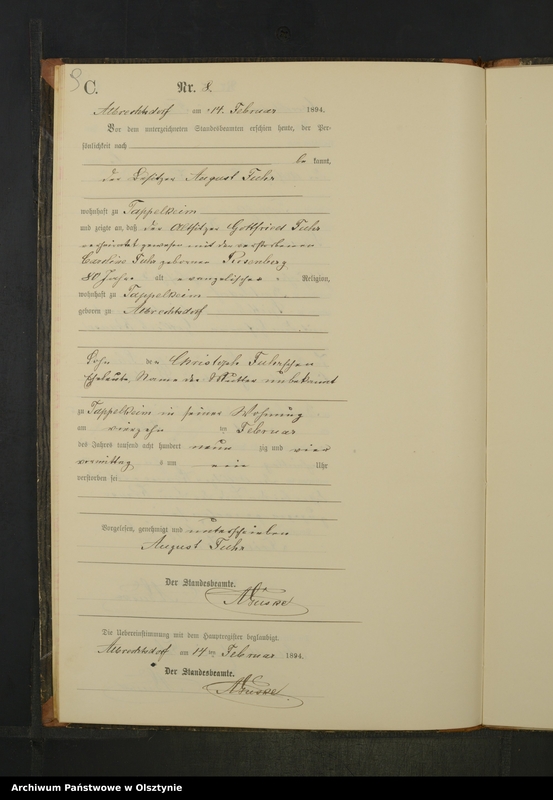 C. Nr. 8.
Albrechtsdorf am 14. Februar 1894.
Vor dem unterzeichneten Standesbeamten erschien heute, der Per-
sönlichkeit nach
be kannt,
der Besitzer August Fuhr
wohnhaft zu Tappelkeim
und zeigte an, daß der Altsitzer Gottfried Fuhr
verheirathet gewesen mit der verstorbenen
Caroline Fuhr geborenen Rosenberg
80 Jahre alt evangelischer Religion,
wohnhaft zu Tappelkeim
geboren zu Albrechtsdorf
Sohn der Christoph Fuhrschen
Eheleute, Name der Mutter unbekannt
zu Tappelkeim in seiner Wohnung
am vierzehn ten Februar
des Jahres tausend acht hundert neun zig und vier
vormittags um ein Uhr
verstorben sei
Vorgelesen, genehmigt und unterschrieben
August Fuhr
Der Standesbeamte.
Die Uebereinstimmung mit dem Hauptregister beglaubigt.
Albrechtsdorf am 14 ten Februar 1894.
Der Standesbeamte.
Archiwum Państwowe w Olsztynie